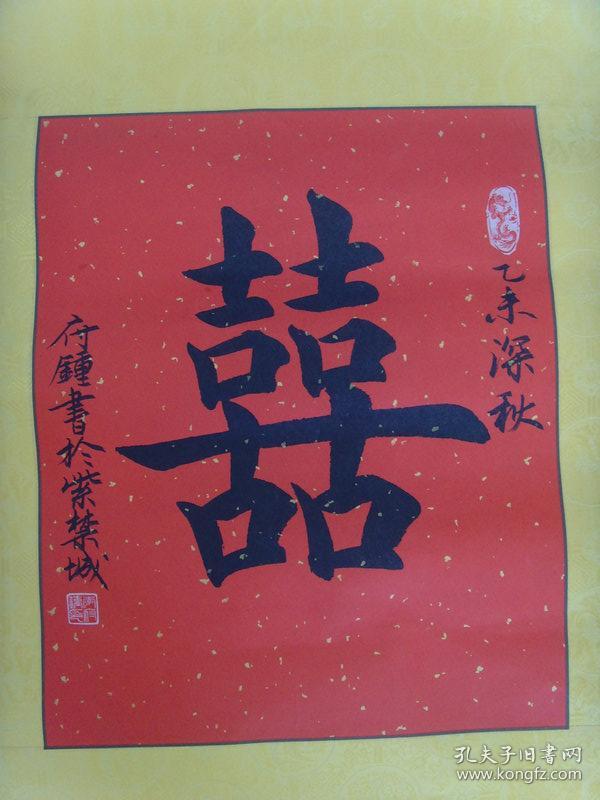 乙未深秋
囍
府鍾書於紫禁城
孔夫子旧書网
www.kongfz.com